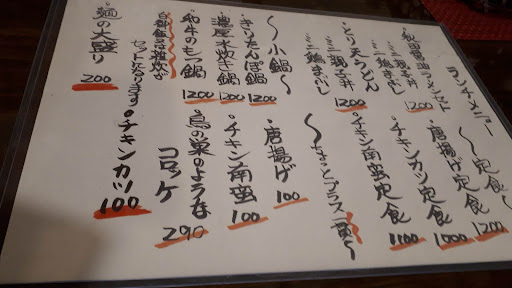 ランチメニュー
秋田醤油ラーメンセット
ミニ親子丼
ミニ鶏まぶし
1200
とり天うどん
ミニ親子丼
ミニ鶏まぶし
1200
〜小鍋〜
きりたんぽ鍋
1200
濃厚水炊き鍋
1200
和牛のもつ鍋
1200
白御飯又は雑炊が
セットになります。
麺の大盛り
200
〜定食〜
唐揚げ定食
1200
チキンカツ定食
1000
チキン南蛮定食
1100
〜ちょっとプラス一貫〜
唐揚げ
100
チキン南蛮
100
鳥の巣のような
コロッケ
290
チキンカツ
100